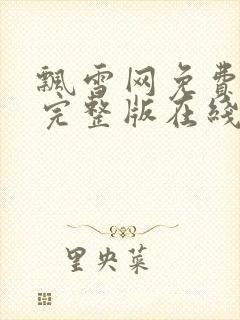 飘雪网免费
完整版在线
里央菜